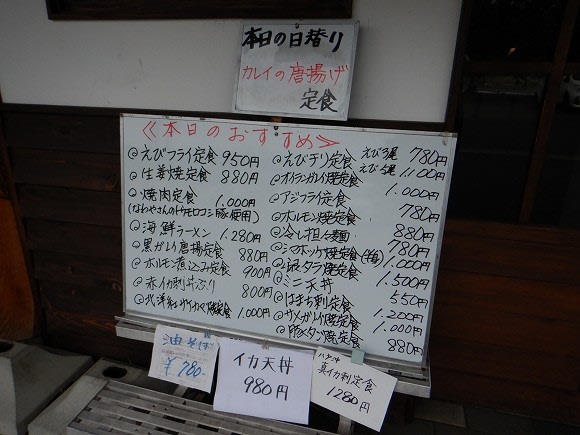 本日の日替り
カレイの唐揚げ
定食
≪本日のおすすめ≫
@えびフライ定食 950円
@生姜焼定食 880円
@焼肉定食 1.000円
(なわやさんのトウモロコシ豚使用)
@海鮮ラーメン 1.280円
@黒ガレイ唐揚定食 880円
@ホルモン煮込み定食 900円
@赤イカ刺丼ぶり 800円
定食 1.000円
@えびチリ定食 えび3尾 780円
えび5尾 1.100円
@オイランガレイ焼定食 1.000円
@アジフライ定食 780円
@ホルモン焼定食 880円
@冷し担々麺 780円
@シマホッケ焼定食(半身) 1.000円
@銀タラ焼定食 1.500円
@ミニ天丼 550円
@はまち刺定食 1.200円
@サメガレイ焼定食 1.000円
@豚タン焼定食 880円
油そば
¥780-
イカ天丼
980円
真イカ刺定食
1280円